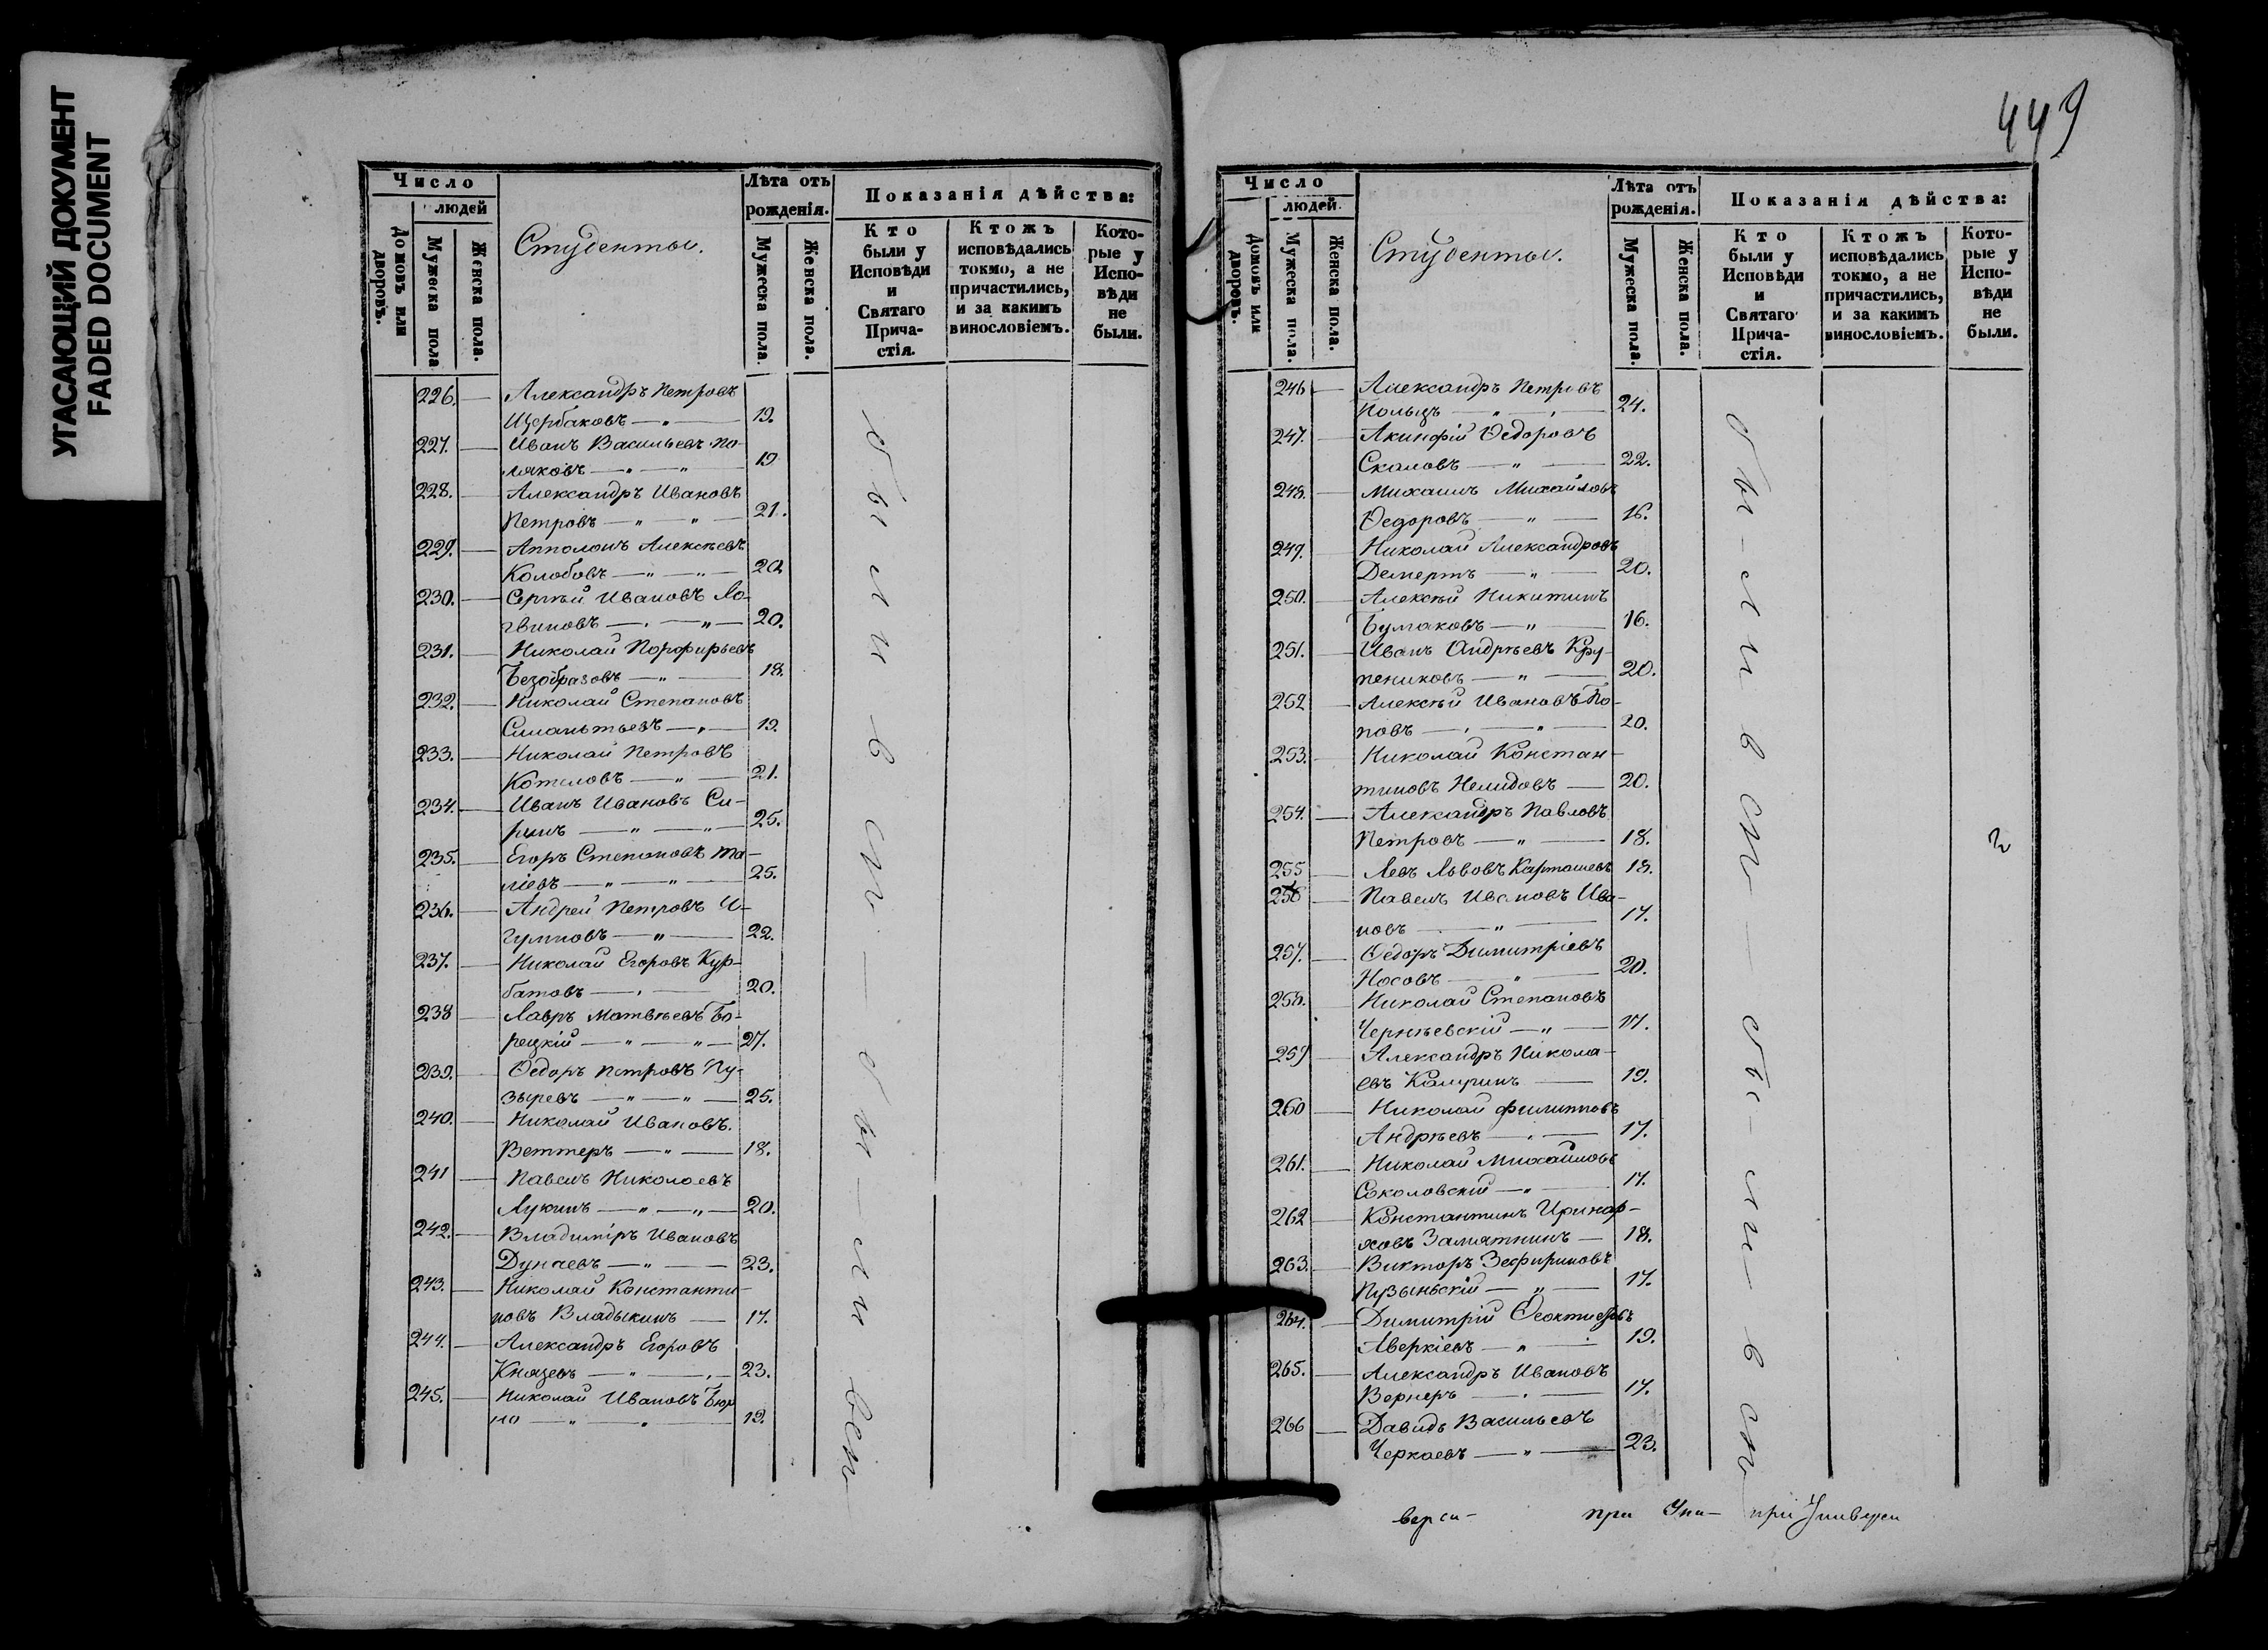 УГАСАЮЩИЙ ДОКУМЕНТ
FADED DOCUMENT
Число
людей
Домовъ или дворовъ.
Мужеска пола
Женска пола.
Студенты.
Лѣта отъ рожденія.
Мужеска пола.
Женска пола.
Показанія дѣйства:
Кто были у Исповѣди и Святаго Прича-стія.
Ктожъ исповѣдались токмо, а не причастились, и за какимъ винословіемъ.
Кото-рые у Испо-вѣди не были.
226. — Александръ Петровъ
Щербаковъ — „ — 19.
227. — Иванъ Васильевъ По-
ляковъ — „ — „ 19
228. — Александръ Ивановъ
Петровъ — „ — „ — 21.
229. — Апполонъ Алексѣевъ
Колобовъ — „ — „ — 20
230. — Сергѣй Ивановъ Ло-
гвиновъ — „ — „ — 20.
231. — Николай Порфирьевъ
Безобразовъ — „ — 18.
232. — Николай Степановъ
19.
233. — Николай Петровъ
Котеловъ — „ — 21.
234. — Иванъ Ивановъ Си-
ринъ — „ — „ — 25.
235. — Егоръ Степановъ Та-
ліевъ — „ — „ — 25.
236. — Андрей Петровъ И-
гумновъ — „ — 22.
237. — Николай Егоровъ Кур-
батовъ — „ — 20.
238 — Лавръ Матвѣевъ Бо-
рецкій — „ — „ — 27.
239. — Ѳедоръ Петровъ Пу-
зыревъ — „ — „ — 25.
240. — Николай Ивановъ.
Веттеръ — „ — 18.
241 — Павелъ Николаевъ
Лукинъ — „ — „ — 20.
242. — Владиміръ Ивановъ
Дунаевъ — „ — 23.
243. — Николай Константи-
новъ Владыкинъ — 17.
244. — Александръ Егоровъ
Князевъ — „ — „ — 23.
245. — Николай Ивановъ Бюр
но — „ — „ 19.
бы ли всѣ — бы — ли всѣ
449
Число
людей.
Домовъ или дворовъ.
Мужеска пола.
Женска пола.
Студенты.
Лѣта отъ рожденія.
Мужеска пола.
Женска пола.
Показанія дѣйства:
Кто были у Исповѣди и Святаго Прича-стія.
Ктожъ исповѣдались токмо, а не причастились, и за какимъ винословіемъ.
Кото-рые у Испо-вѣди не были.
246 — Александръ Петровъ
Польцъ — „ — 24.
247. — Акинфій Ѳедоровъ
Скаловъ — „ — 22.
248. — Михаилъ Михайловъ
Ѳедоровъ — „ — 16.
249. — Николай Александровъ
Демертъ — „ — 20.
250. — Алексѣй Никитинъ
Бумаковъ — „ — 16.
251. — Иванъ Андрѣевъ Кру-
пениковъ — „ — 20.
252 — Алексѣй Ивановъ По-
повъ — „ — „ — 20.
253. — Николай Констан-
тиновъ Нелидовъ — 20.
254. — Александръ Павловъ
Петровъ — „ — 18.
255 — Левъ Львовъ Карташевъ 18.
256 — Павелъ Ивановъ Ива-
новъ — „ — 17.
257. — Ѳедоръ Димитріевъ
Носовъ — „ — 20.
258. — Николай Степановъ
Чернѣевскій — „ — 17.
259 — Александръ Никола-
евъ Камринъ — 19.
260 — Николай Филипповъ
Андрѣевъ — „ — 17.
261. — Николай Михайловъ
Соколовскій — „ — 17.
262 — Константинъ Иринар-
ховъ Замятнинъ — 18.
263. — Викторъ Зефириновъ
Пузыньскій — „ — 17.
264. — Димитрій Ѳеоктистовъ
Аверкіевъ — „ — 19.
265. — Александръ Ивановъ
Вернеръ — „ — 17.
266 — Давидъ Васильевъ
Черкаевъ — „ — 23.
бы — ли всѣ — бы — ли — всѣ
верси- при Уни- при Универси